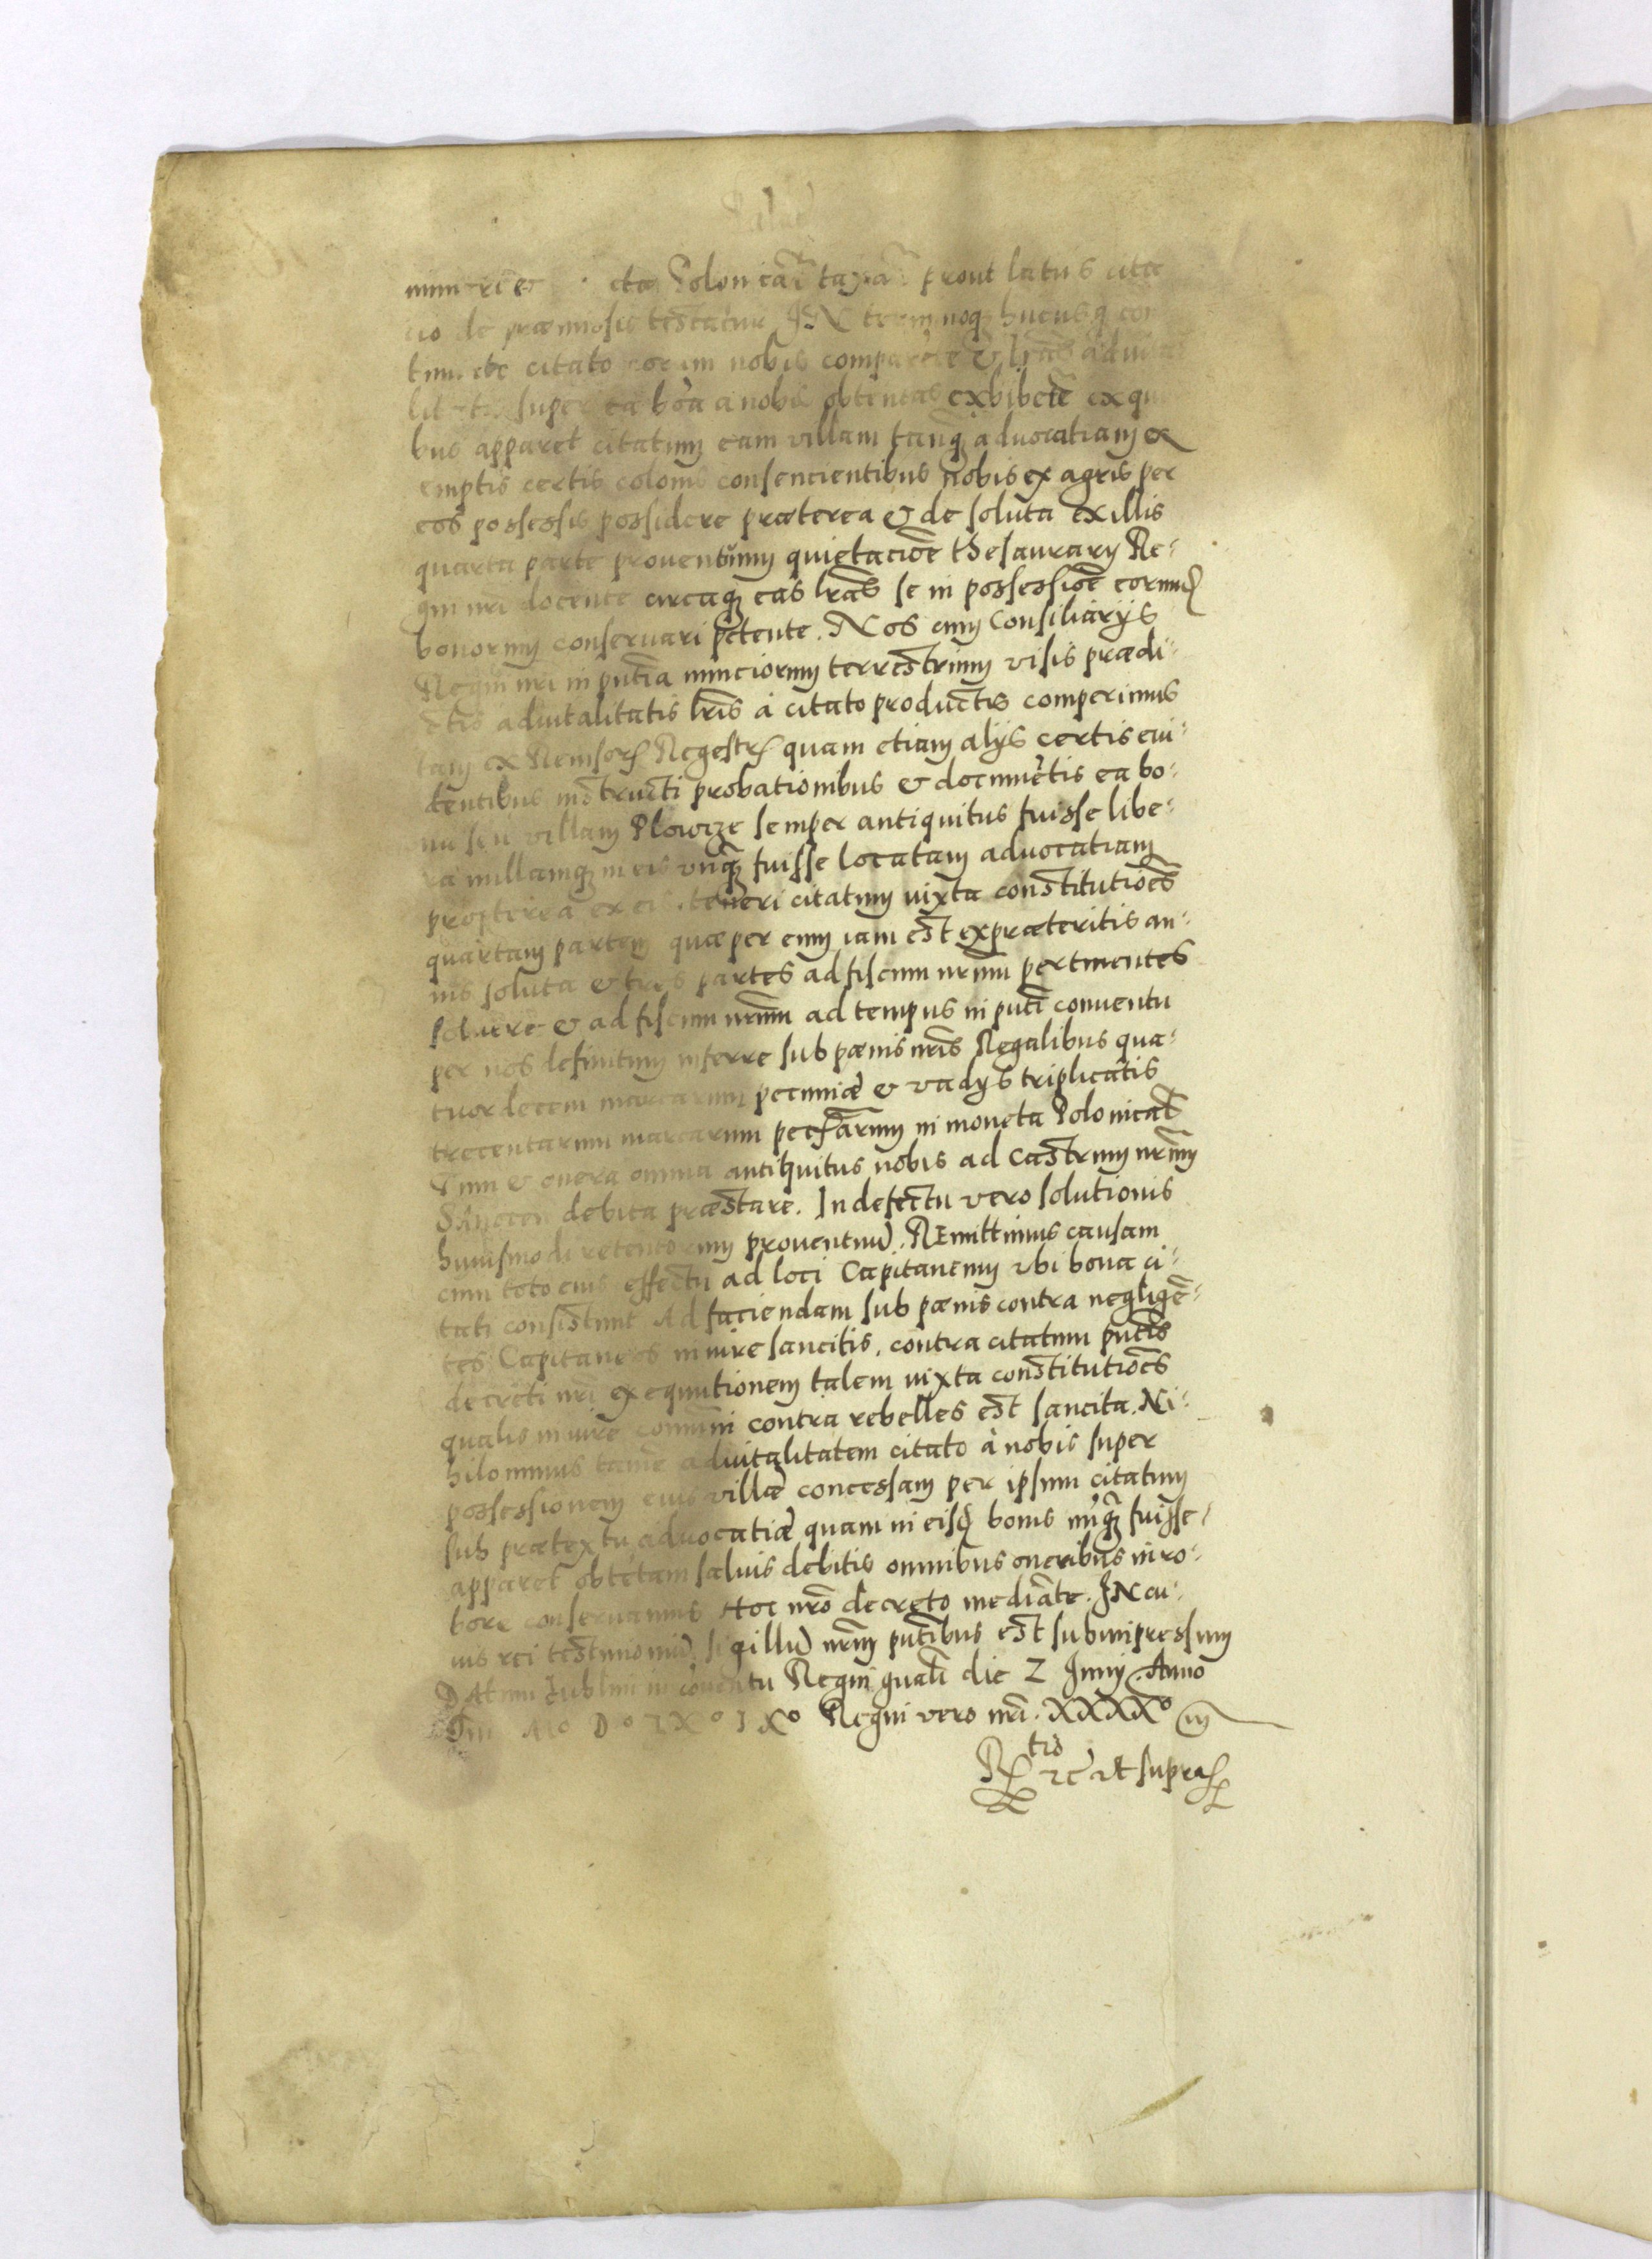 Polonicał prout latius cita
cio de præmissis testatur IN terminoq hucusq con
citato coram nobis comparente & lrās aduita
super ea bōa a nobis obtentas exhibētē ex qui
bus apparet citatum eam villam tanq̄ aduocatiam ex
emptis certis colonis consencientibus nobis ex agris per
eos possessis possidere præterea & de soluta ex illis
quarta parte prouentuum quietaciōē thesaurarij Re⸗
gni nri docente circaq; eas lrās se in possessiōē eorund
bonorum conseruari petente. Nos cum Consiliarijs
Regni nri in pūtia nunciorum terrestrium visis prædi⸗
ctis aduitalitatis lrīs à citato productis comperimus
tam ex Regestr quam etiam alijs certis eui⸗
dentibus instructi probationibus & documētis ea bo⸗
na seu villam Plowcze semper antiquitus fuisse libe⸗
ra nullamq; in eis vnq̄ fuisse locatam aduocatiam
propterea ex eis teneri citatum iuxta constitutiōēs
quartam partem quæ per eum iam est ex præteritis an⸗
nis soluta & tres partes ad fiscum nrūm pertinentes
soluere & ad fiscum nrūm ad tempus in pūti conuentu
per nos definitum inferre sub pænis nrīs Regalibus qua⸗
tuordecem marcarum pecuniæ & vadijs triplicatis
trecentarum marcarum pecūarum in moneta Polonicał
& onera omnia antiquitus nobis ad Castrum nrūm
debita præstare. In defectu vero solutionis
huiusmodi retentorum prouentuū. REmittimus causam
cum toto eius effectu ad loci Capitaneum vbi bona ci⸗
tati consistunt Ad faciendam sub pænis contra negligē⸗
tes Capitaneos in iure sancitis, contra citatum pūtis
decreti nri exequutionem talem iuxta constitutiōēs
qualis in iure comūni contra rebelles est sancita. Ni⸗
hilominus tamē aduitalitatem citato à nobis super
possessionem eius villæ concessam per ipsum citatum
sub prætextu aduocatiæ quam in eisd bonis nunq̄ fuisse
apparet obtētam saluis debitis omnibus oneribus in ro⸗
bore conseruamus Hoc nrō decreto mediāte. IN cu⸗
ius rei testimoniū sigillū nrūm pūtibus est subimpressum
DAtum Lublini in cōuentu Regni gnāli die 2 Iunij Anno
Dni Mº Dº LXº IXº Regni vero nri. XXXXº
Rtio ut supra